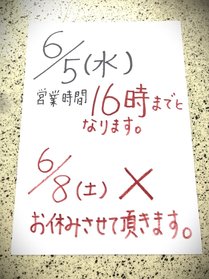 6/5(水)
営業時間16時までと
なります。
6/8(土) ×
お休みさせて頂きます。